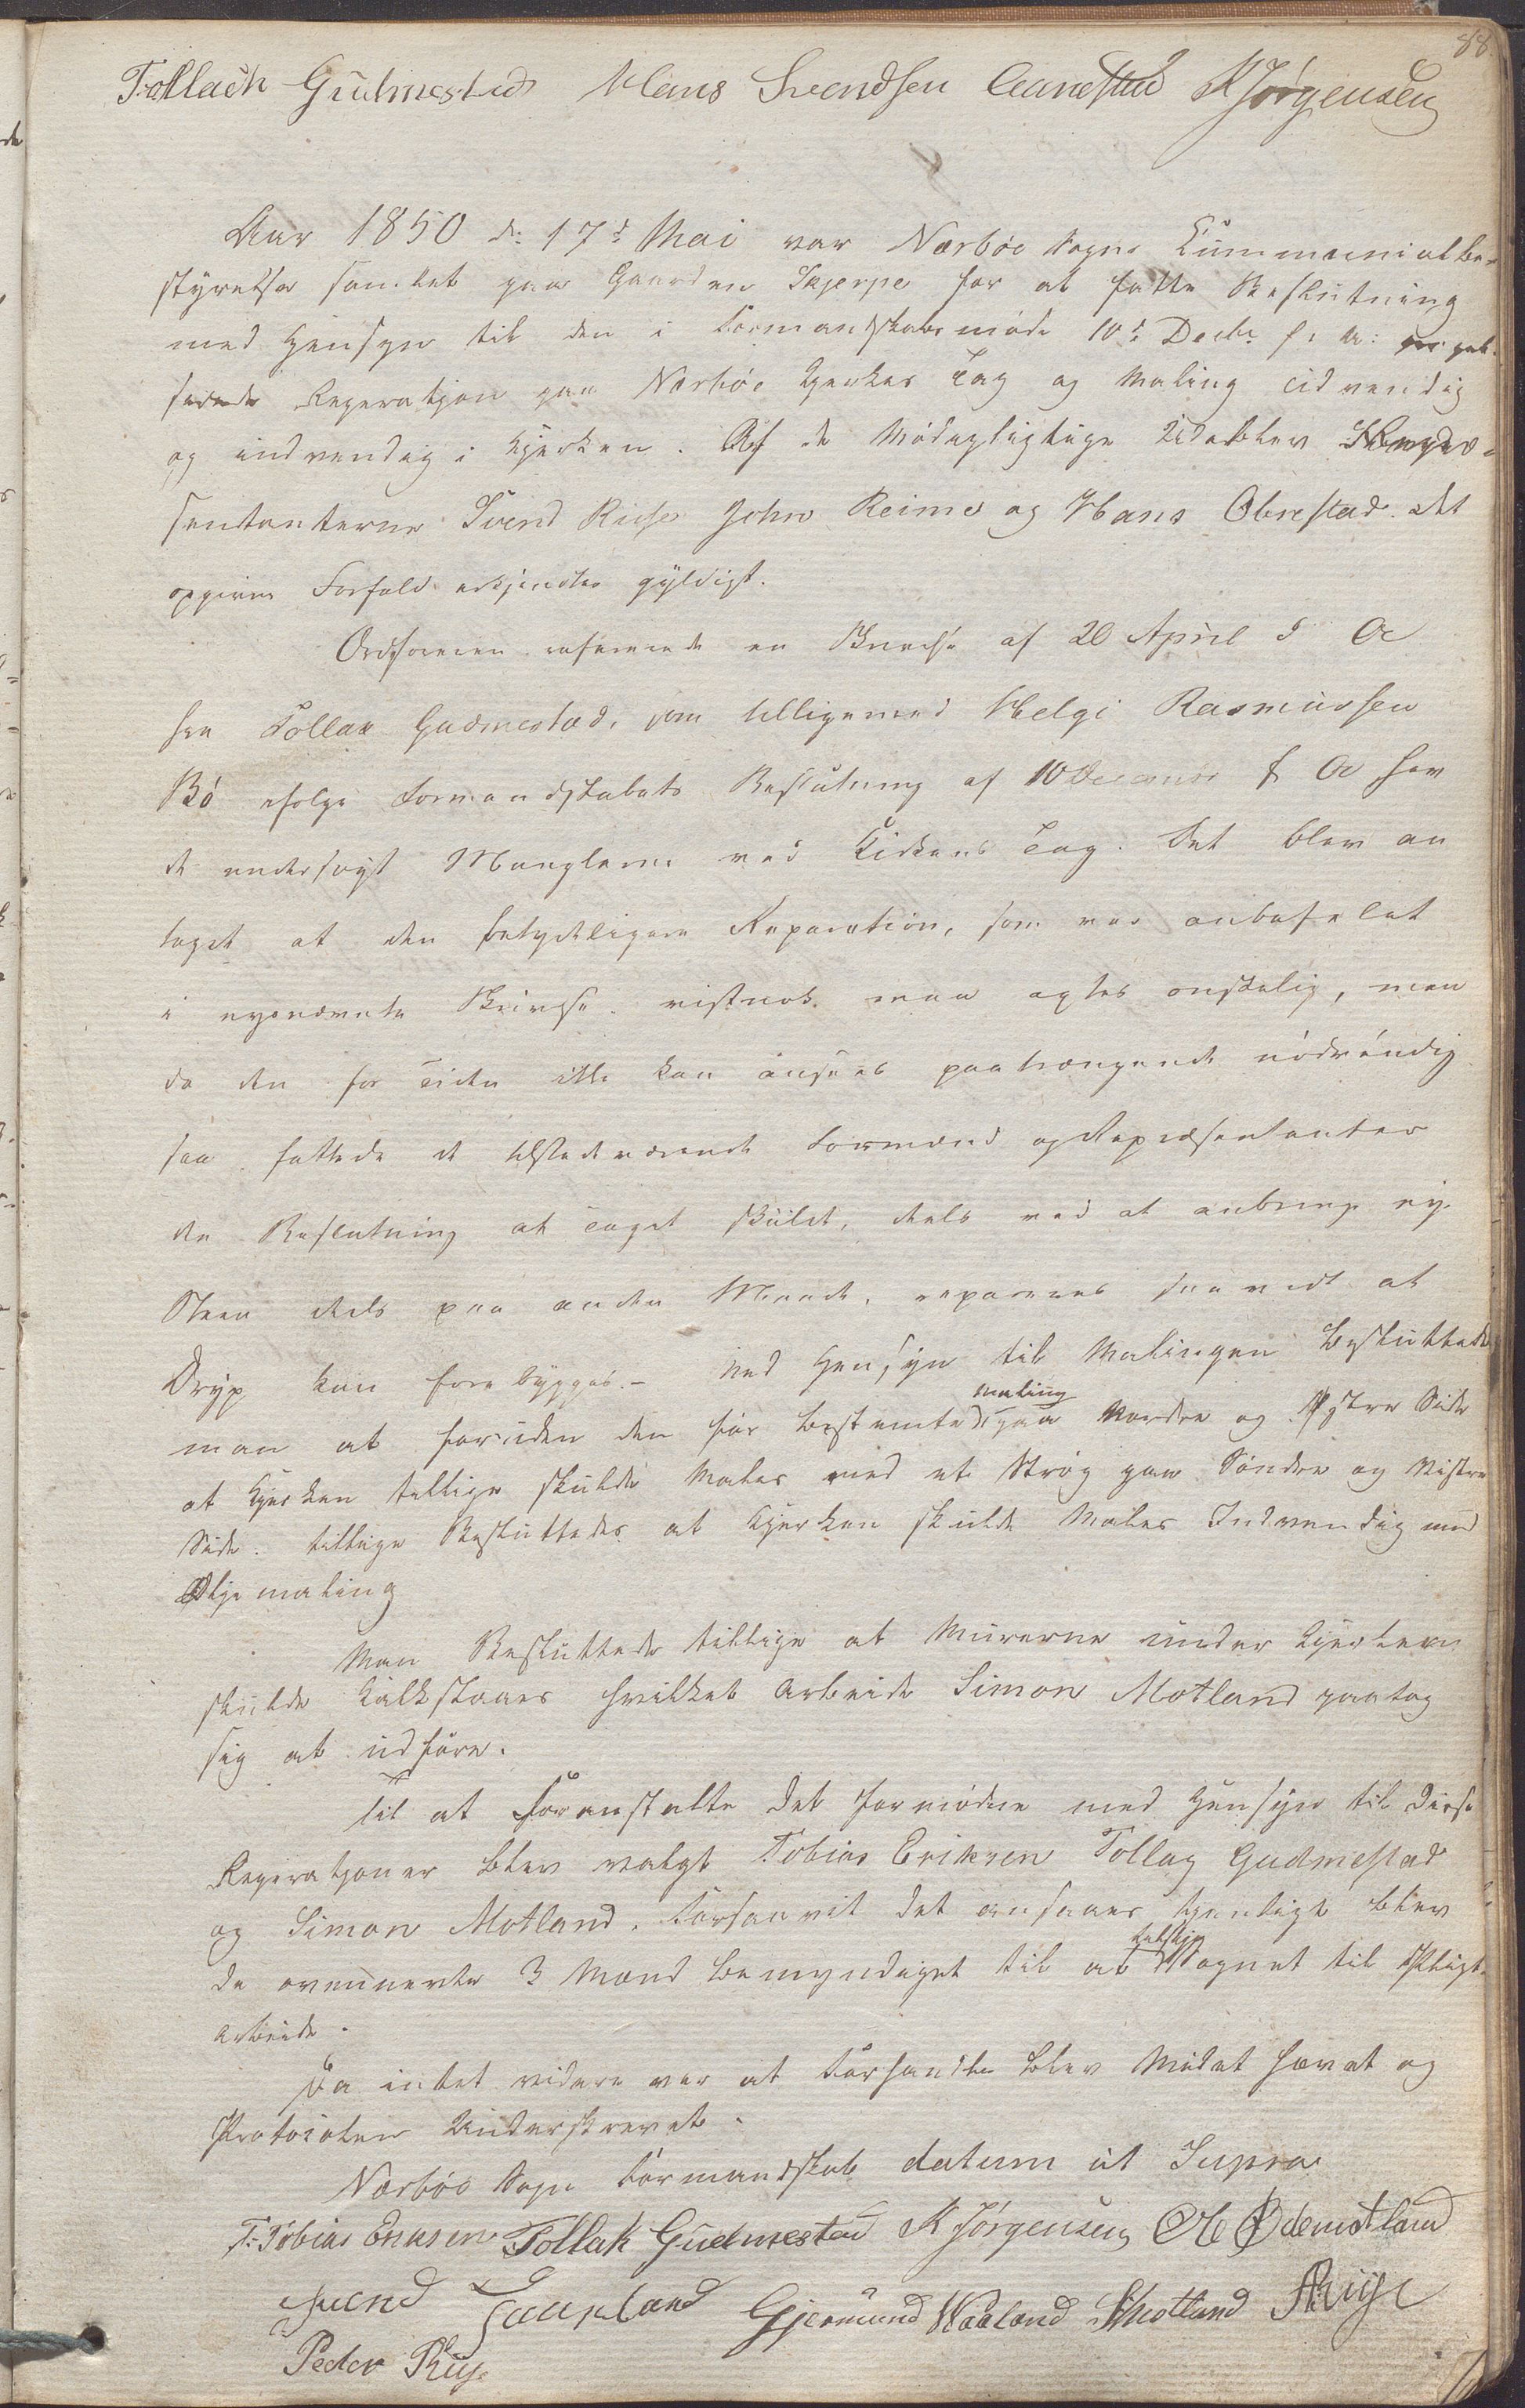 88
Tollach Gudmestad Hans Svendsen Aanestad K Jörgensen
Aar 1850 d: 17d Mai var Nærböe Sogns Kummunialbe-
styrelse samlet paa Gaarden Skjerpe for at fatte Beslutning
med Hensyn til den i Formandskabsmöde 10d Decbr f: A:
Reperatjon paa Nærböe Kjerkes Tag og Maling udvendig
og indvendig i Kjerken. Af de Mödepligtige Udeblev Repræ-
sentanterne Svend Riise John Reime og Hans Obrestad. Det
opgivne Forfald erkjendtes gyldigt.
Ordföreren refererede en Skrivelse af 20 April d A
fra Tollak Gudmestad, som tilligemed Helge Rasmussen
Bö ifölge Formandskabets Beslutning af 10 December f A hav
de undersögt Manglerne ved Kirkens Tag. Det blev an
taget at den betydeligere Reparation, som var anbefalet
i nysnævnte Skrivelse vistnok maa agtes önskelig, men
da den for Tiden ikke kan ansees paatrængende nödvendig
saa fattede de tilstedeværende Formænd og Repræsentanter
den Beslutning at Taget skulde, dels ved at anbringe ny
Steen dels paa anden Maade, repareres saavidt at
Dryp kan forebygges. - Med Hensyn til Malingen Besluttede
man at foruden den för bestemte maling paa Nordre og Östre Side
at Kjerken tillige skulde Males med et Strög paa Söndre og Vestre
Side. tillige Besluttedes at Kjerken skulde Males Indvendig med
Oljemaling
Man Besluttede tillige at Murerne under Kjerken
skulde Kalkslaaes hvilket Arbeide Simon Motland paatog
sig at udföre.
Til at Foranstalte det fornödne med Hensyn til Disse
Reperatjoner blev valgt Tobias Eriksen Tollag Gudmestad
og Simon Motland. Forsaavit det ansaaes tjenligt blev
de ovennevte 3 Mænd bemyndiget til at tilsige Sognet til Pligt-
arbeide.
Da intet videre var at Forhandle blev Mödet hævet og
Protocolen Underskrevet.
Nærböe Sogns Formandskab datum ut Supra
T. Tobias Eriksen Tollak Gudmestad K Jörgensen Ole Ödemotland
Svend Gjermund Waaland S Motland Riise
Peder Riise